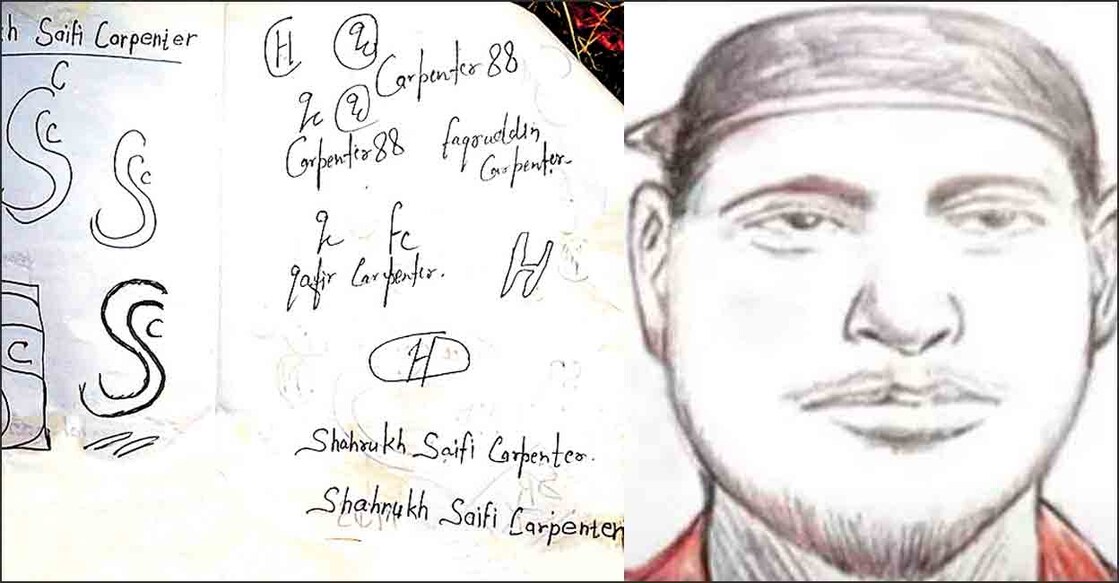 h Saifi Carpenter
C
S c
S c
C
S c
H
Carpenter 88
Carpenter 88
faqruddin
Carpenter.
fc
qafir Carpenter.
H
H
Shahrukh Saifi Carpenter.
Shahrukh Saifi Carpenter